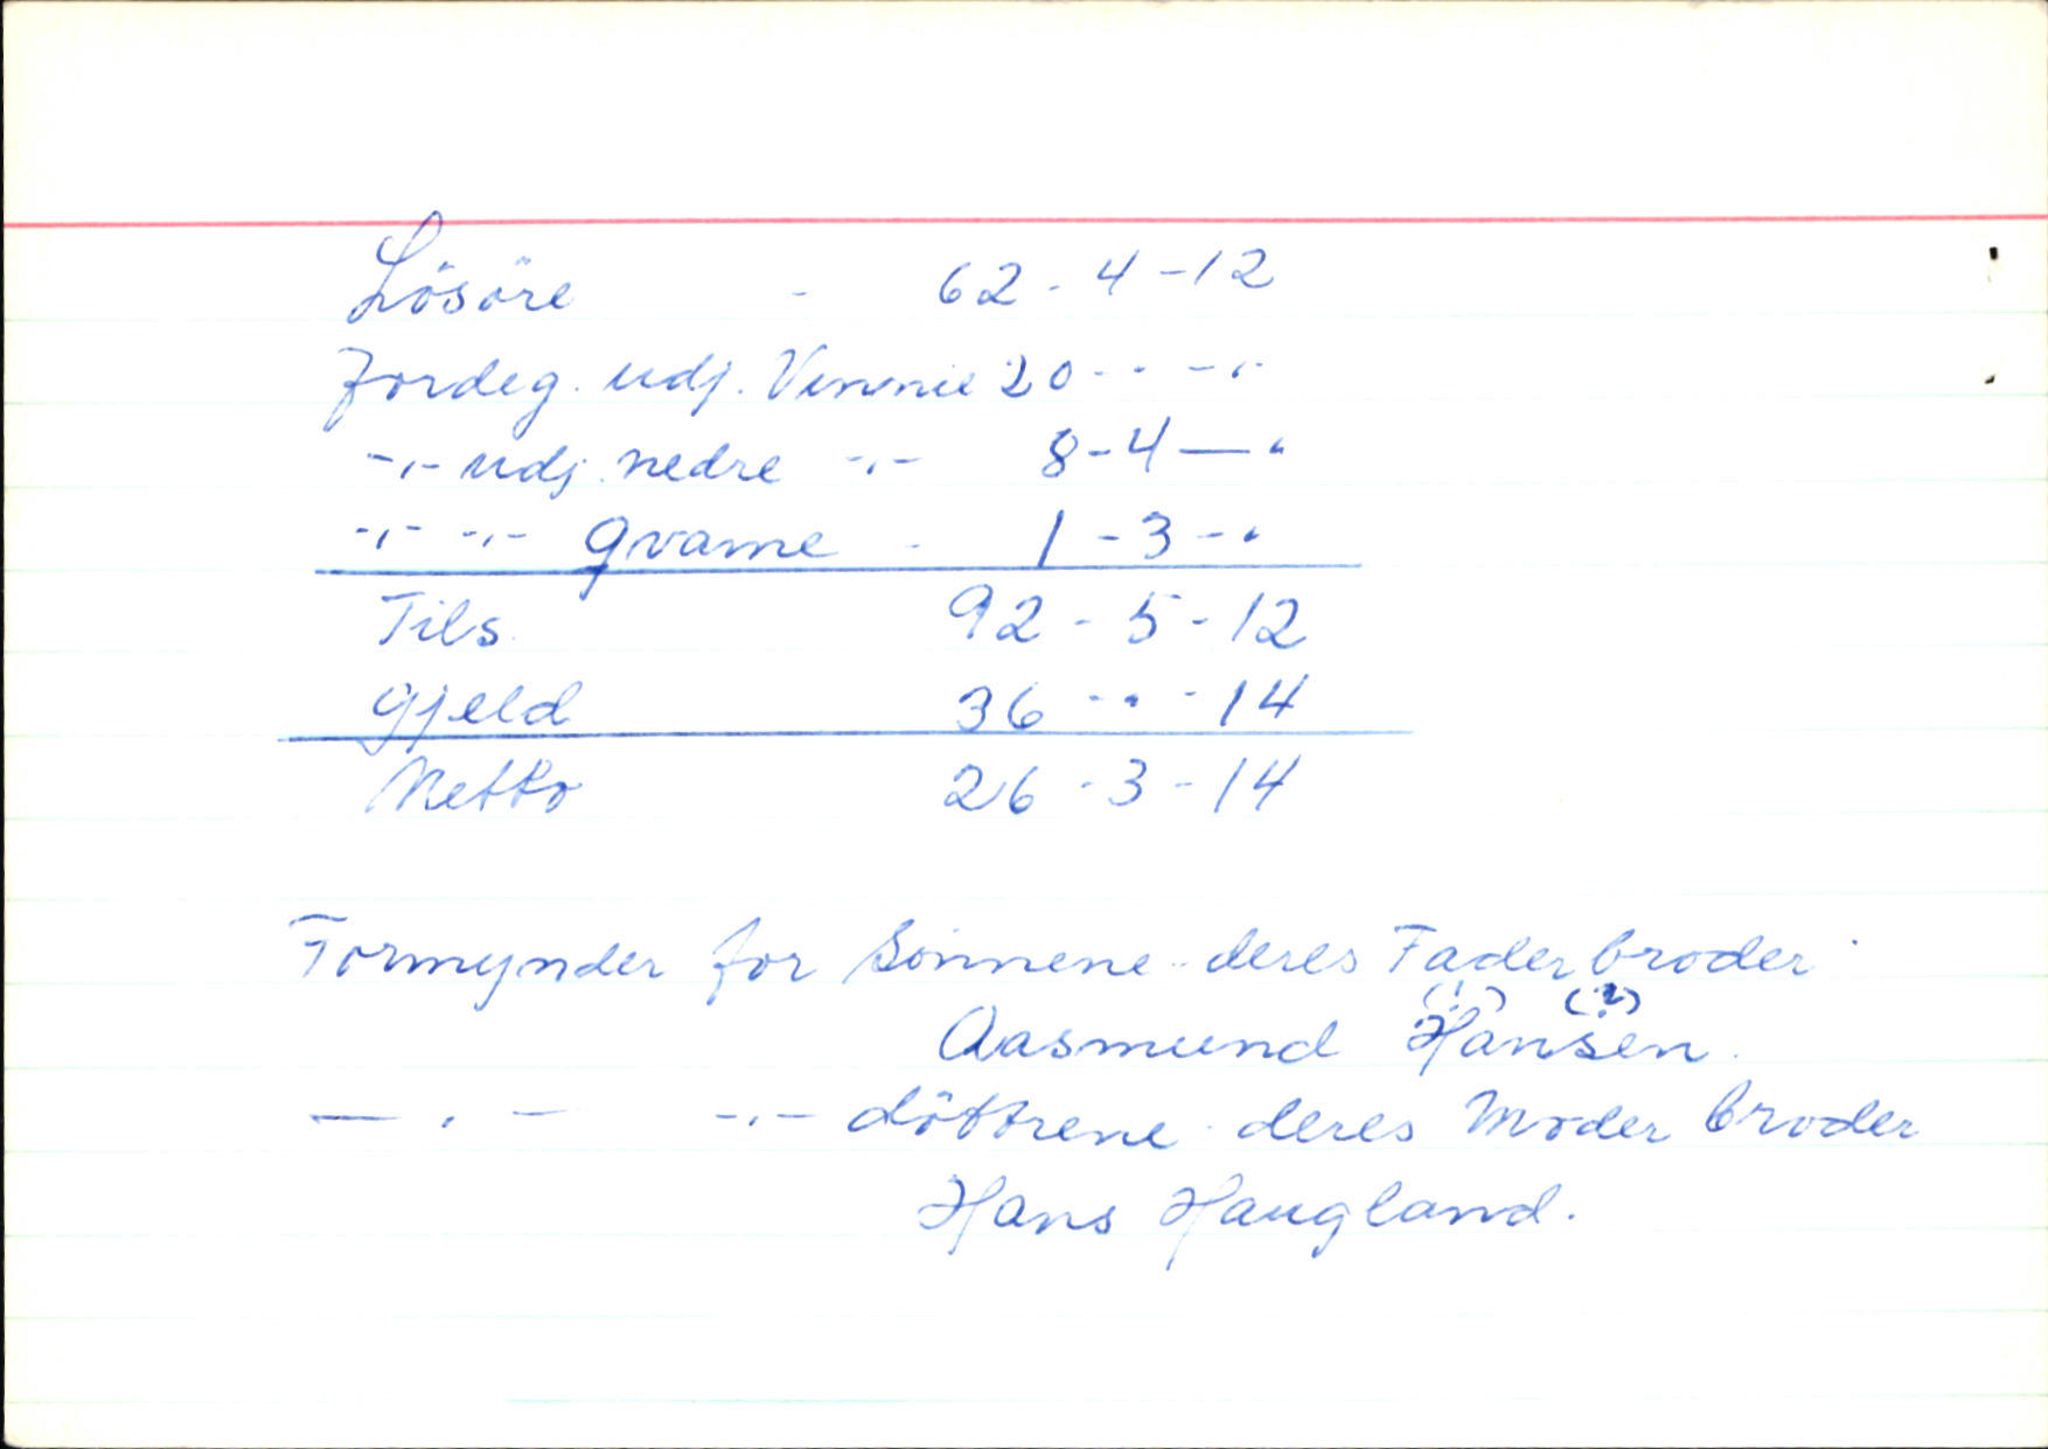 Lösöre - 62 - 4 - 12
Jordeg. udj. Vinnie 20 - " - "
-"- udj. nedre -"- 8 - 4 — "
-"- -"- Qvame - 1 - 3 - "
Tils. 92 - 5 - 12
Gjeld 36 - " - 14
Netto 26 - 3 - 14
Formynder for Sönnene - deres Faderbroder
(!) (?)
Aasmund Hansen.
— " — -"- döttrene - deres Moder broder
Hans Haugland.